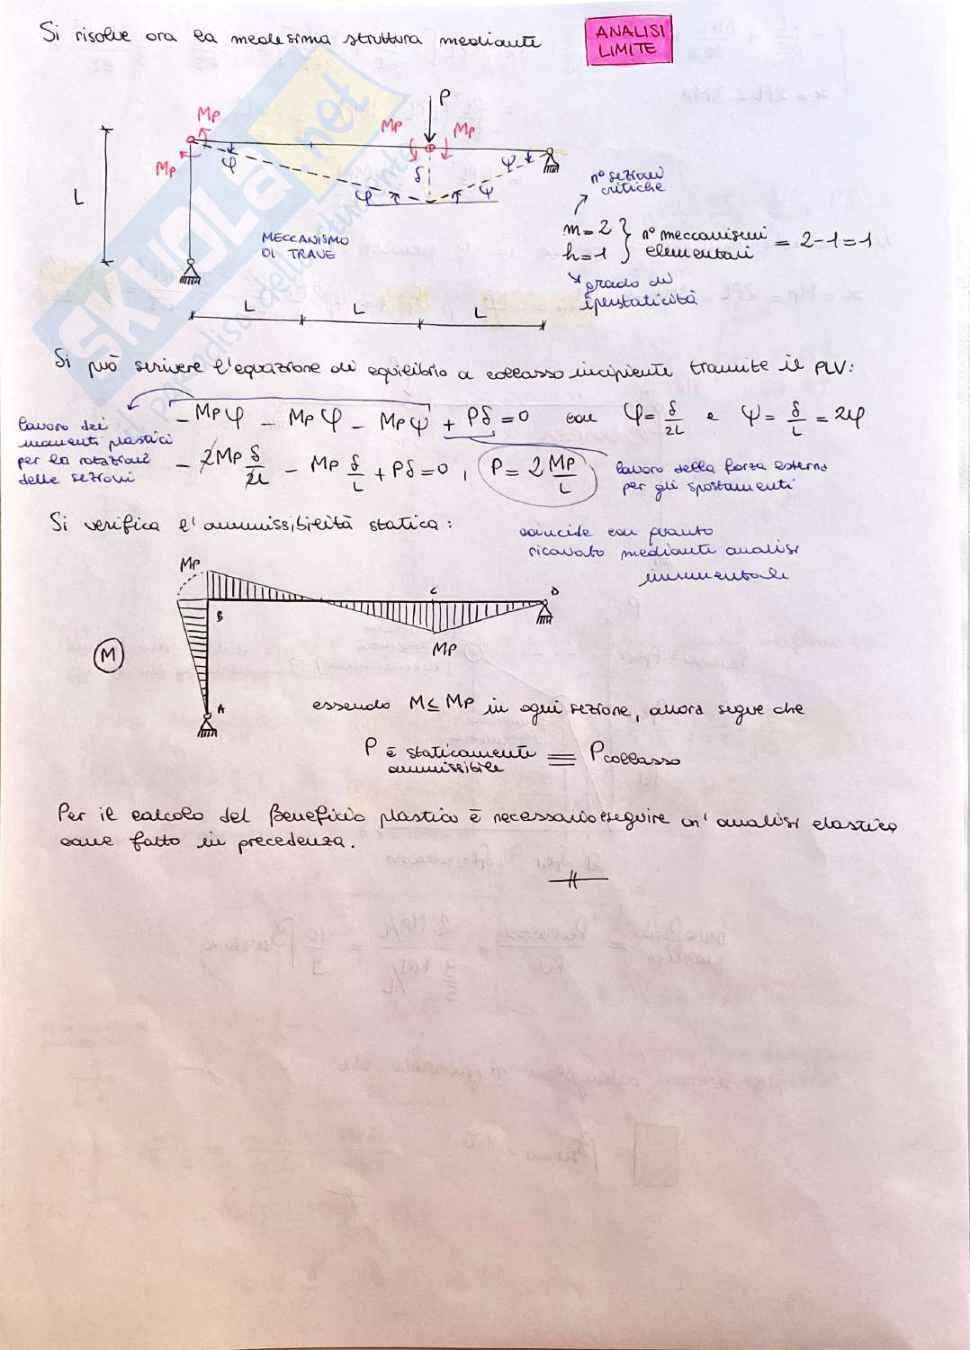 Si risolve ora la medesima struttura mediante
ANALISI
LIMITE
P
MP
MP
MP
MP
φ
δ
ψ
φ
ψ
L
MECCANISMO
DI TRAVE
n° sezioni
critiche
m=2
h=1
} n° meccanismi
elementari = 2-1=1
grado di
iperstaticità
L
L
L
Si può scrivere l'equazione di equilibrio a collasso incipiente tramite il PLV:
lavoro dei
momenti plastici
per le rotazioni
delle sezioni
- MP φ - MP φ - MP ψ + Pδ = 0 con φ = δ/2L e ψ = δ/L = 2φ
- 2MP δ/2L - MP δ/L + Pδ = 0 , P = 2 MP/L
lavoro della forza esterna
per gli spostamenti
Si verifica l'ammissibilità statica:
coincide con quanto
ricavato mediante analisi
incrementale
MP
B
C
D
MP
M
A
essendo M ≤ MP in ogni sezione, allora segue che
P è staticamente
ammissibile ≡ Pcollasso
Per il calcolo del Beneficio plastico è necessario eseguire un'analisi elastica
come fatto in precedenza.
SKUOLA.net